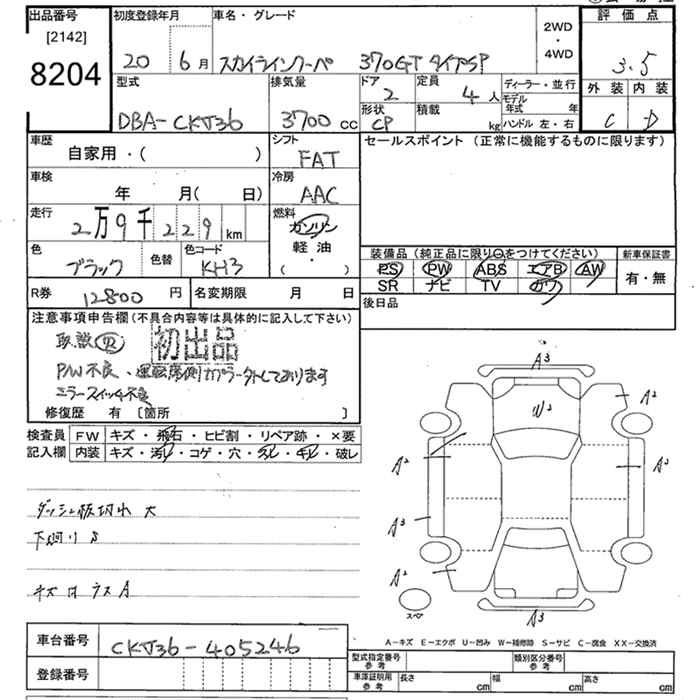 出品番号 初度登録年月 車名・グレード 2WD・4WD 評価点
[2142]
8204 20 6月 スカイラインクーペ 370GT タイプSP 3.5
型式 排気量 ドア 2 定員 4人 ディーラー・並行 外装 内装
DBA-CKV36 3700cc 形状 CP 積載 kg モデル年式 年 ハンドル 左・右 C D
車歴 自家用・( ) シフト FAT セールスポイント (正常に機能するものに限ります)
車検 年 月( 日) 冷房 AAC
走行 2万9千229km 燃料 ガソリン 軽油・( )
色 ブラック 色替 色コード KH3
装備品(純正品に限り○をつけてください) 新車保証書
PS PW ABS エアB AW 有・無
SR ナビ TV カワ
R券 12800円 名変期限 月 日 後日品
注意事項申告欄(不具合内容等は具体的に記入して下さい)
取説 初出品
P/W不良、運転席側カプラー外しております
ミラースイッチ不良
修復歴 有 [箇所 ]
検査員 FW キズ・飛石・ヒビ割・リペア跡・×要
記入欄 内装 キズ・汚レ・コゲ・穴・スレ・キレ・破レ
ダッシュ板切れ 大
下廻りS
A3
A2
W2
A2
A2
A3
A2
A3
スペア
A-キズ E-エクボ U-凹み W-補修跡 S-サビ C-腐食 XX-交換済
車台番号 CKV36-405246
登録番号
型式指定番号 参考 類別区分番号 参考
車庫証明用 参考 長さ cm 幅 cm 高さ cm